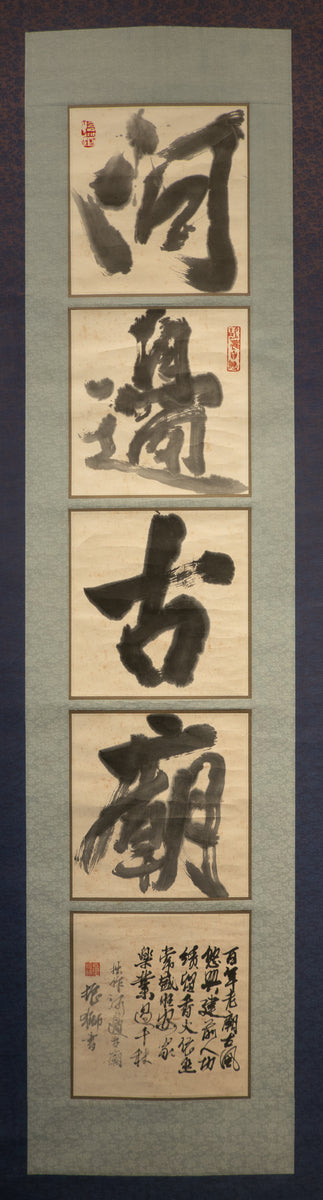 河
邊
古
廟
百年老廟古風
悠興建前人功
績留香火依然
常盛旺安家
樂業過千秋
拙作河邊古廟
振獅書